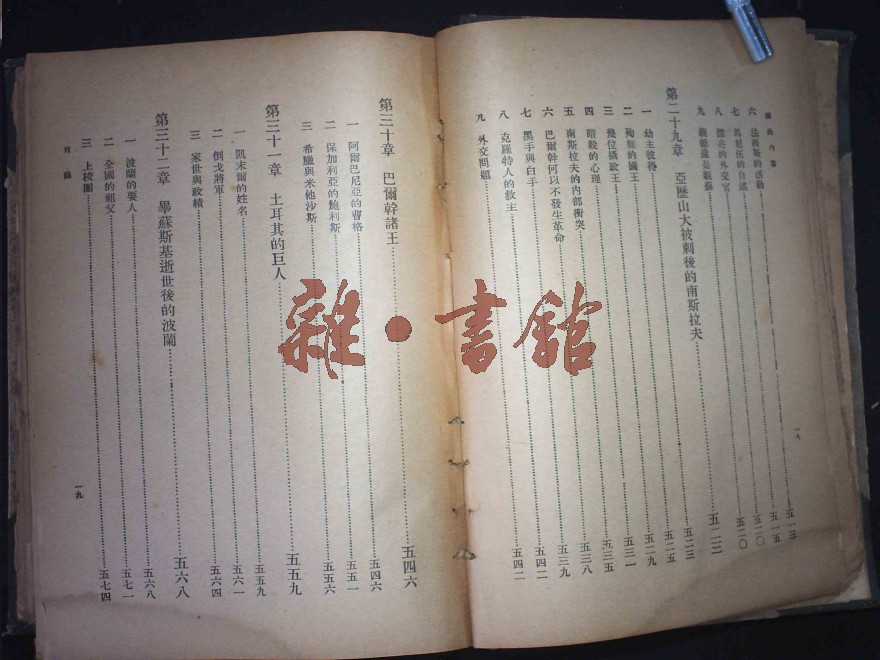 六 法西斯的活動……五一五
七 馬尼伍的自述……五二〇
八 漂亮的外交官……五二〇
九 親德還是親蘇……五二二
第二十九章 亞歷山大被刺後的南斯拉夫……五二三
一 幼主彼得……五二九
二 殉難的國王……五三一
三 幾位攝政王……五三五
四 暗殺的心理……五三八
五 南斯拉夫的內部衝突……五三九
六 巴爾幹何以不發生革命
七 黑手與白手……五四二
八 克羅特人的救主……五四二
九 外交問題
一八
第三十章 巴爾幹諸王……五四六
一 阿爾巴尼亞的曹格……五四六
二 保加利亞的鮑利斯……五五一
三 希臘與米他沙斯……五五六
第三十一章 土耳其的巨人……五五九
一 凱末爾的姓名……五五九
二 倒戈將軍……五六一
三 家世與政績……五六四
第三十二章 畢蘇斯基逝世後的波蘭……五六八
一 波蘭的要人……五六八
二 全國的祖父……五七一
三 上校團……五七四
目錄
一九
雜·書館